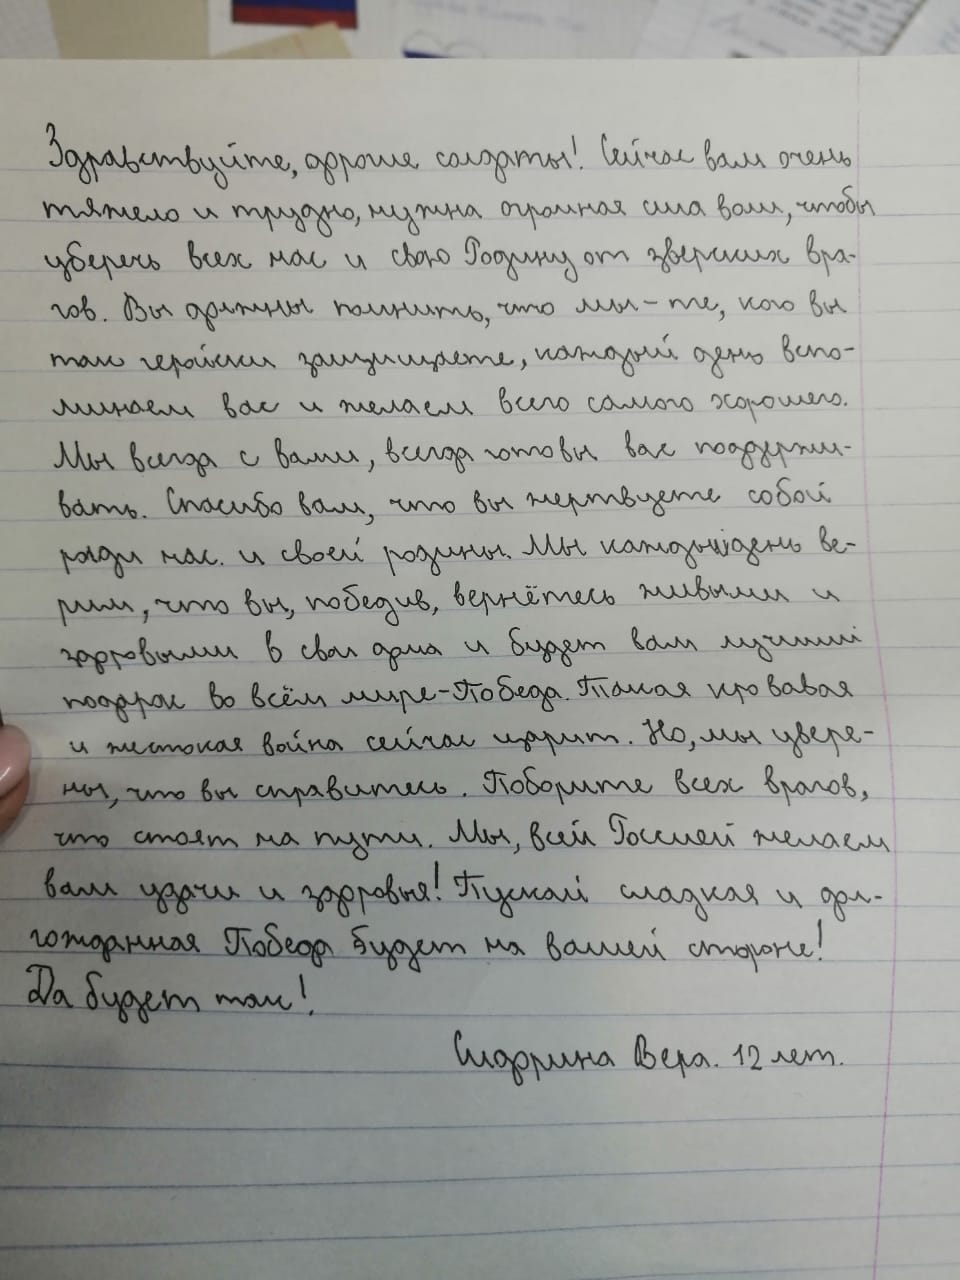 Здравствуйте, дорогие солдаты! Сейчас вам очень
тяжело и трудно, нужна огромная сила воли, чтобы
уберечь всех нас и свою Родину от зверских вра-
гов. Вы должны помнить, что мы - те, кого вы
так геройски защищаете, каждый день вспо-
минаем вас и желаем всего самого хорошего.
Мы всегда с вами, всегда готовы вас поддержи-
вать. Спасибо вам, что вы жертвуете собой
ради нас. и своей родины. Мы каждый день ве-
рим, что вы, победив, вернётесь живыми и
здоровыми в свои дома и будет вам лучший
подарок во всём мире - Победа. Такая кровавая
и жестокая война сейчас царит. Но, мы увере-
ны, что вы справитесь. Поборите всех врагов,
что стоят на пути. Мы, всей Россией желаем
вам удачи и здоровья! Пускай сладкая и дол-
гожданная Победа будет на вашей стороне!
Да будет так!
Вера. 12 лет.